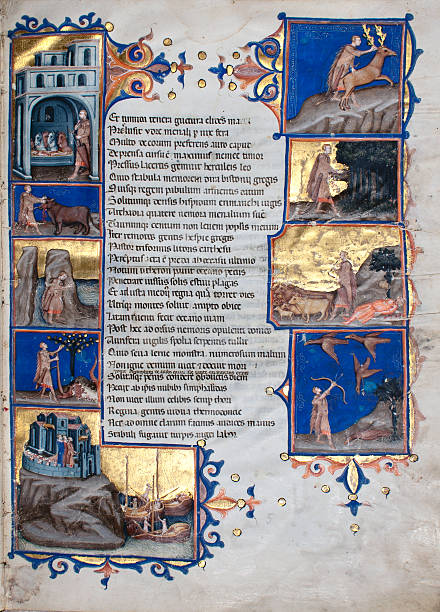 Et tumida tenera guttura elidens manu
Prelusit menali fera
Multo decorum preferens auro caput
Deprensa cursu maximus nemee timor
Pressus lacertis gemuit herculeis leo
Quid stabula memorem dira bistonii gregis
Suisque regem pabulum armentis datum
Solitumque densis hispidum erimanthi iugis
Archadia quatere nemora menalium suem
Taurumque centum non levem populis metum
Inter remotos gentis hesperie greges
Pastor triformis litoris
ab occasu ultimo
Notum citheron oceano pecus
Penetrare iussus solis estivi plagas
Et adusta medius regna que torret dies
Utrinque montes solvit obice
Latam fecit oceano viam
Post hec nemoris opulenti domos
Aurifera vigilis spolia serpentis tulit
Quid seva lerne monstra numerosum malum
Non igne
Solitasque pennis condere obductis diem
Petit ab ipsis nubibus stimphalidas
Non vicit illum celibis semper tori
Regina gentis vidua
Nec ad omne clarum facinus audaces manus
Stabuli fugavit turpis augei labor